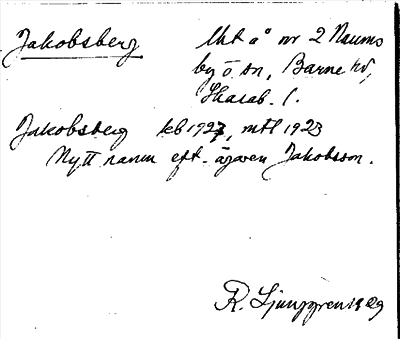 Jakobsberg Utt å nr 2 Naums
by ö. sn, Barne hd,
Skarab. l.
Jakobsberg kb 1927, mtl 1923
Nytt namn eft. ägaren Jakobsson.
R. Ljunggren 1929